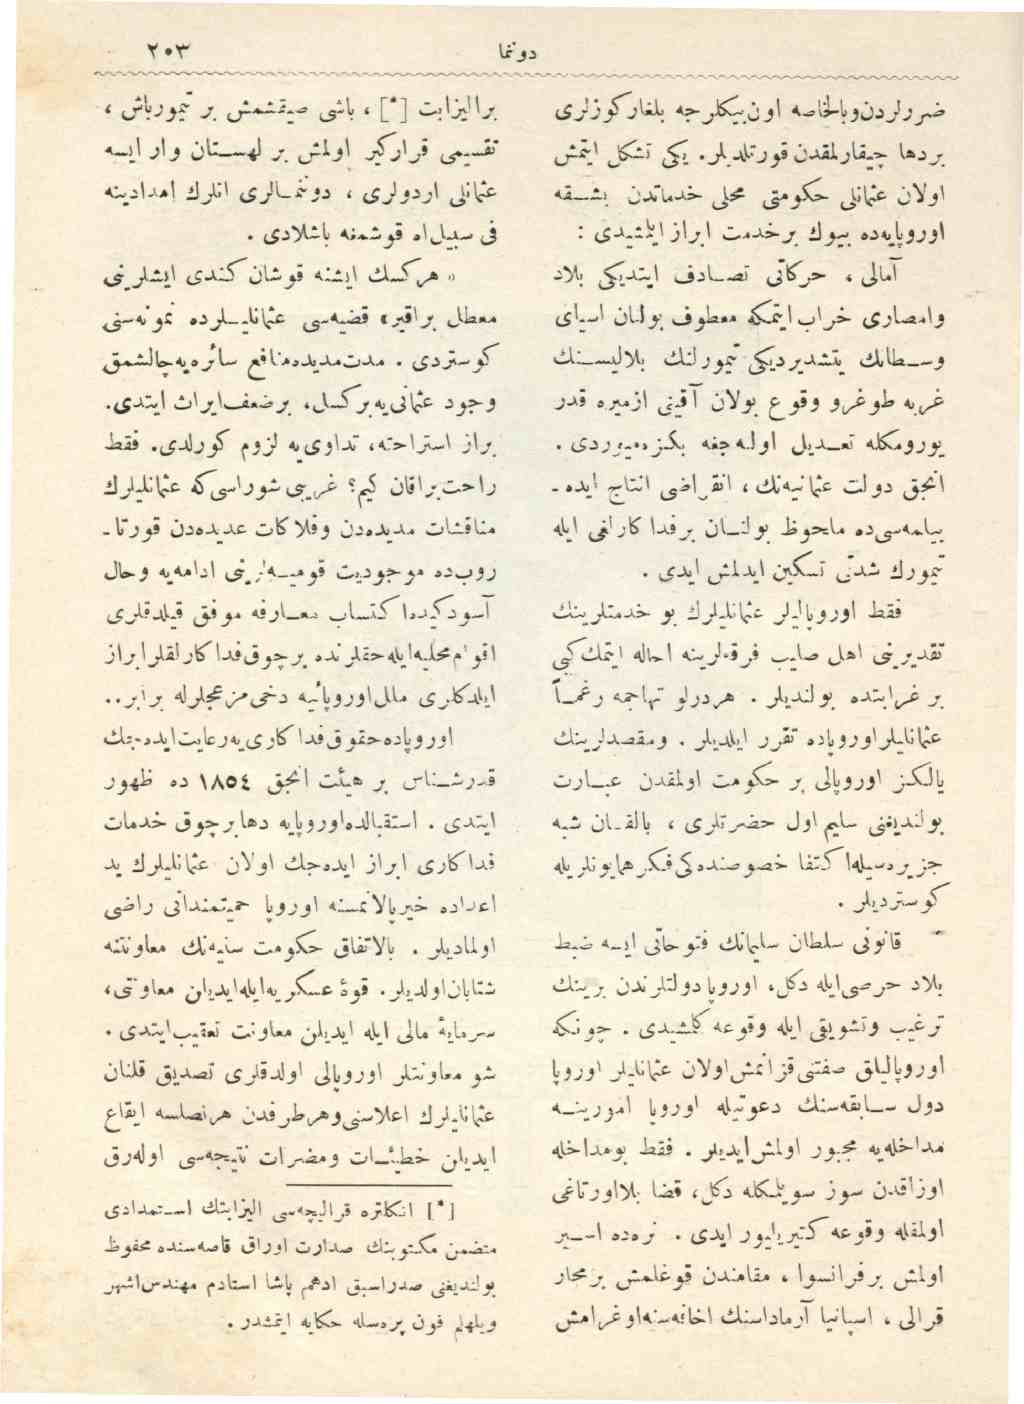 دونما
٢٠٣
ضررلردن‌وبالخاصه اون‌بیكلرجه بلغار كوزلری
بردها چیقارلمقدن قورتلدیلر. یكی تشكل ایتمش
اولان عثمانلی حكومتی محلی خدماتدن بشـقه
اوروپایه‌ده بیوك برخدمت ابراز ایلمشیدی :
آمالی ، حركاتی تصـادف ایتدیكی بلاد
وامصاری خراب ایتمكه معطوف بولنان اسیای
وسـطانك یتشدیردیكی تیمورلنك بلالیسـنك
غربه طوغرو وقوع بولان آقینی ازمیره قدر
یورومكله تعـدیل اوله‌جغه بكزه‌میوردی .
انجق دولت عثمانیه‌نك ، انقراضی انتاج ایده ـ
بیلمه‌سی‌ده ملحوظ بولنـان برفدا كارلغی ایله
تیمورك شدتی تسكین ایدلمش ایدی .
فقط اوروپالیلر عثمانلیلرك بو خدمتلرینك
تقدیرینی اهل صلیب فرقه‌لرینه احاله ایتمك كبی
بر غرابتده بولندیلر . هردرلو تهاجمه رغمـاً
عثمانلیلر اوروپاده تقرر ایلدیلر . ومقصدلرینك
یالكـز اوروپالی بر حكومت اولمقدن عبـارت
بولندیغنی سلیم اول حضرتلری ، بالقـان شبه
جزیره‌سیله اكتفا خصوصنده‌كی فـكر همایونلریله
كوستردیلر .
قانونی سلطان سلیمانك فتوحاتی ایسه ضبط
بلاد حرصی‌ایله دكل، اوروپا دولتلرندن برینك
ترغیب وتشویقی ایله وقوعه كلمشیدی . چونكه
اوروپالیلق صفتنی قزانمش‌اولان عثمانلیلر اوروپا
دول سـابقه‌سنك دعوتیله اوروپا امورینـه
مداخله‌یه مجبور اولمش‌ایدیلر . فقط بومداخله
اوزاقدن سوز سویلمكله دكل، قضا بلا اورتاغی
اولمقله وقوعه كتیریلیور ایدی . نره‌ده اسـیر
اولمش برفرانسوا ، مقامندن قوغلمش برمجار
قرالی ، اسپانیا آرماداسنك اخافه‌سنه‌اوغرامش
برالیزابت [*] ، باشی صیقشمش بر تیمورباش ،
تقسیمی قرارگیر اولمش بر لهسـتان وار ایسه
عثمانلی اردولری ، دونمـالری انلرك امدادینه
فی سبیل‌اه قوشمغه باشلادی .
« هركسك ایشنه قوشان كندی ایشلرینی
معطل براقیر» قضیه‌سی عثمانلیـلرده نمونه‌سنی
كوستردی . مدت‌مدیده‌منافع سائره‌یه‌چالشمق
وجود عثمانی‌یه‌بركسل، برضعف‌ایراث ایتدی.
براز استراحته، تداوی‌یه لزوم كورلدی. فقط
راحت‌براقان كیم؟ غریبی شوراسی‌كه عثمانلیلرك
مناقشات مدیده‌دن وفلاكات عدیده‌دن قورتا ـ
روب‌ده موجودیت قومیـه‌لرینی ادامه‌یه وحال
آسودكیده‌اكتساب معـارفه موفق قیلدقلری
اقوام‌محلیه‌ایله‌حقلرنده برچوق‌فداكارلقلرابراز
ایلدكلری ملل‌اوروپائیه دخی‌مزعجلرله برابر..
اوروپاده‌حقوق‌فداكاری‌یه‌رعایت‌ایده‌جك
قدرشـناس بر هیئت انجق ١٨٥٤ ده ظهور
ایتدی . استقبالده‌اوروپایه دهابرچوق خدمات
فداكاری ابراز ایده‌جك اولان عثمانلیلرك ید
اعداده خیرپالانمسنه اوروپا حمیتمندانی راضی
اولمادیلر . بالاتفاق حكومت سنیه‌نك معاونتنه
شتابان‌اولدیلر. قوهٔ عسكریه‌ایله‌ایدیلن معاونتی،
سرمایهٔ مالی ایله ایدیلن معاونت تعقیب‌ایتدی .
شو معاونتلر اوروپالی اولدقلری تصدیق قلنان
عثمانلیلرك اعلاسنی‌وهرطرفدن هرنصلسه ایقاع
ایدیلن خطیئـات ومضرات نتیجه‌سی اوله‌رق
[*] انكلتره قرالیچه‌سی الیزابتك استمدادی
متضمن مكتوبنك صدارت اوراق قاصه‌سنده محفوظ
بولندیغنی صدراسبق ادهم پاشا استادم مهندس‌اشهر
ویلهلم فون پره‌سله حكایه ایتمشدر .